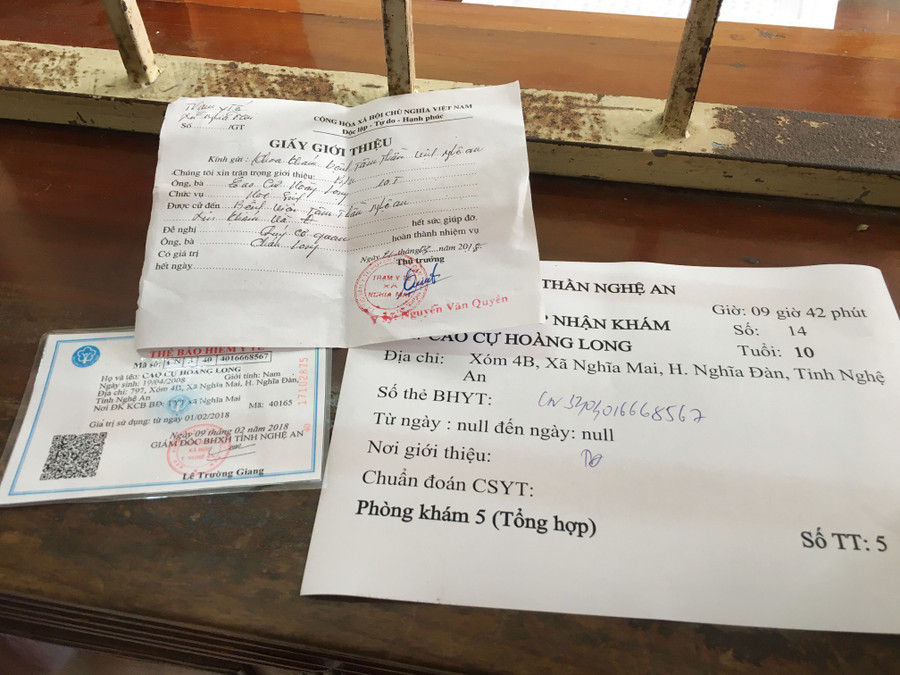 Trạm y tế
Xã Nghĩa Mai
Số /GT
CỘNG HÒA XÃ HỘI CHỦ NGHĨA VIỆT NAM
Độc lập - Tự do - Hạnh phúc
GIẤY GIỚI THIỆU
Kính gửi : Khoa khám bệnh Tâm Thần tỉnh Nghệ an
Chúng tôi xin trân trọng giới thiệu:
Ông, bà Cao Cự Hoàng Long 10T
Chức vụ Học Sinh
Được cử đến Bệnh viện Tâm Thần Nghệ an
Xin khám và
Đề nghị Quý cơ quan hết sức giúp đỡ.
Ông, bà Cháu Long hoàn thành nhiệm vụ
Có giá trị
hết ngày
Ngày tháng năm 2018
Thủ trưởng
TRẠM Y TẾ
XÃ
NGHĨA MAI
Y sỹ: Nguyễn Văn Quyền
THẺ BẢO HIỂM Y TẾ
Mã số: 40 4016668567
Họ và tên: CAO CỰ HOÀNG LONG
Ngày sinh: 19/04/2008 Giới tính: Nam
Địa chỉ: 797, Xóm 4B, Xã Nghĩa Mai, H. Nghĩa Đàn,
Tỉnh Nghệ An
Nơi ĐK KCB BĐ: TYT xã Nghĩa Mai Mã: 40165
Giá trị sử dụng: từ ngày 01/02/2018
Ngày 09 tháng 02 năm 2018
GIÁM ĐỐC BHXH TỈNH NGHỆ AN
Lê Trường Giang
17102875
40
THẦN NGHỆ AN
Giờ: 09 giờ 42 phút
P NHẬN KHÁM
Số: 14
CAO CỰ HOÀNG LONG
Tuổi: 10
Địa chỉ: Xóm 4B, Xã Nghĩa Mai, H. Nghĩa Đàn, Tỉnh Nghệ
An
Số thẻ BHYT: CN 3404016668567
Từ ngày : null đến ngày: null
Nơi giới thiệu:
Chuẩn đoán CSYT:
Phòng khám 5 (Tổng hợp)
Số TT: 5